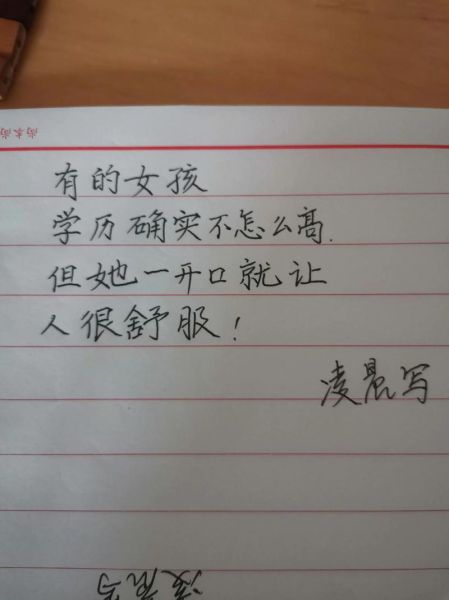 尚本尚
有的女孩
学历确实不怎么高.
但她一开口就让
人很舒服!
凌晨写
凌晨写